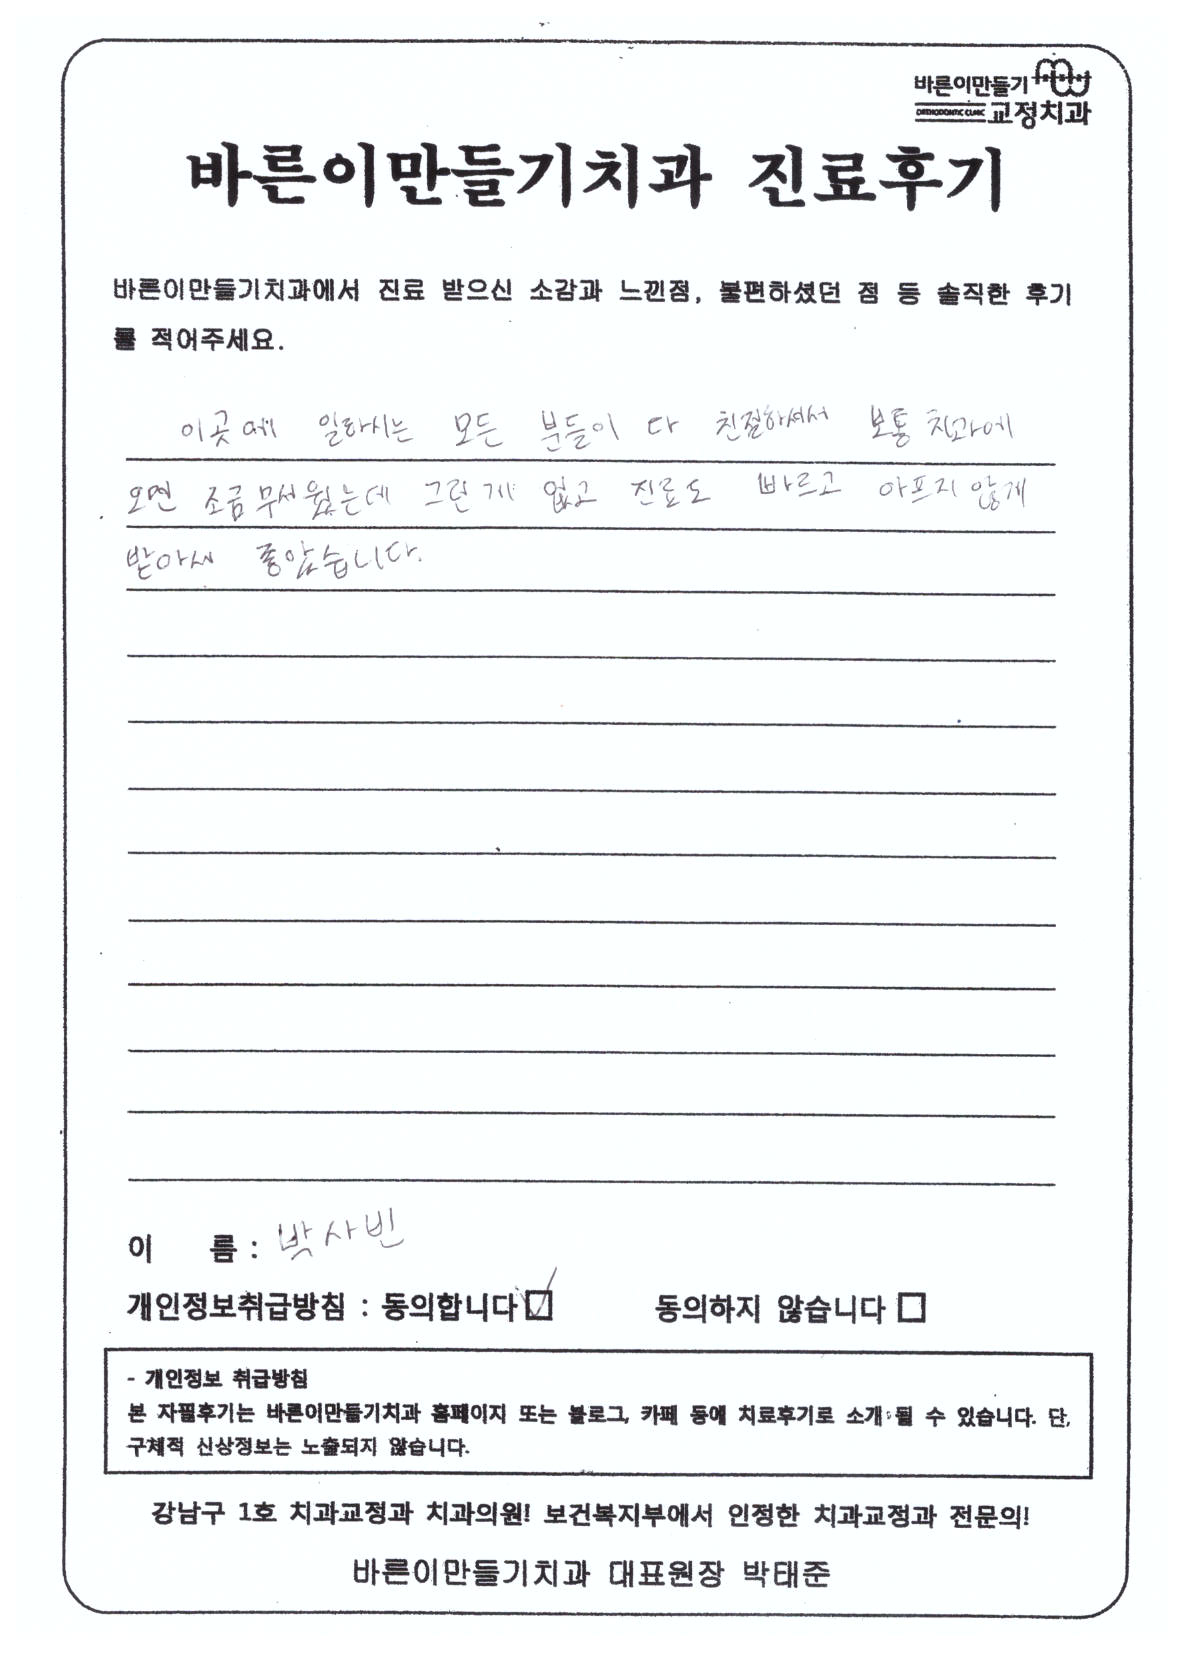 바른이만들기
ORTHODONTIC CLINIC 교정치과
바른이만들기치과 진료후기
바른이만들기치과에서 진료 받으신 소감과 느낀점, 불편하셨던 점 등 솔직한 후기
를 적어주세요.
이곳에 일하시는 모든 분들이 다 친절하셔서 보통 치과에
오면 조금 무서웠는데 그런 게 없고 진료도 빠르고 아프지 않게
받아서 좋았습니다.
이 름 : 박사빈
개인정보취급방침 : 동의합니다 ☑ 동의하지 않습니다 □
- 개인정보 취급방침
본 자필후기는 바른이만들기치과 홈페이지 또는 블로그, 카페 등에 치료후기로 소개 될 수 있습니다. 단,
구체적 신상정보는 노출되지 않습니다.
강남구 1호 치과교정과 치과의원! 보건복지부에서 인정한 치과교정과 전문의!
바른이만들기치과 대표원장 박태준